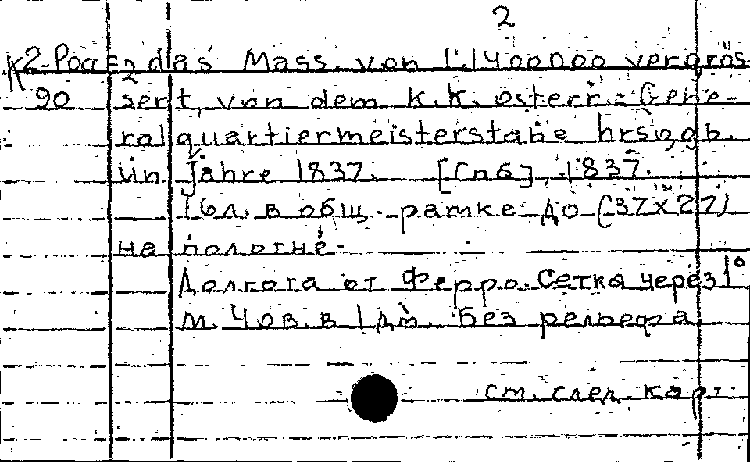 2
K2-Рос/2 das Mass. von 1:1400000 vergrös
90 sert, von dem K.K. österr. Gene-
ralquartiermeisterstabe hrsggb.
im Jahre 1837. [Спб], 1837.
16л. в общ. рамке до (37x27)
на полотне.
Долгота от Ферро. Сетка через 1°
М. 40в. в 1 дм. Без рельефа
см. след. карт.